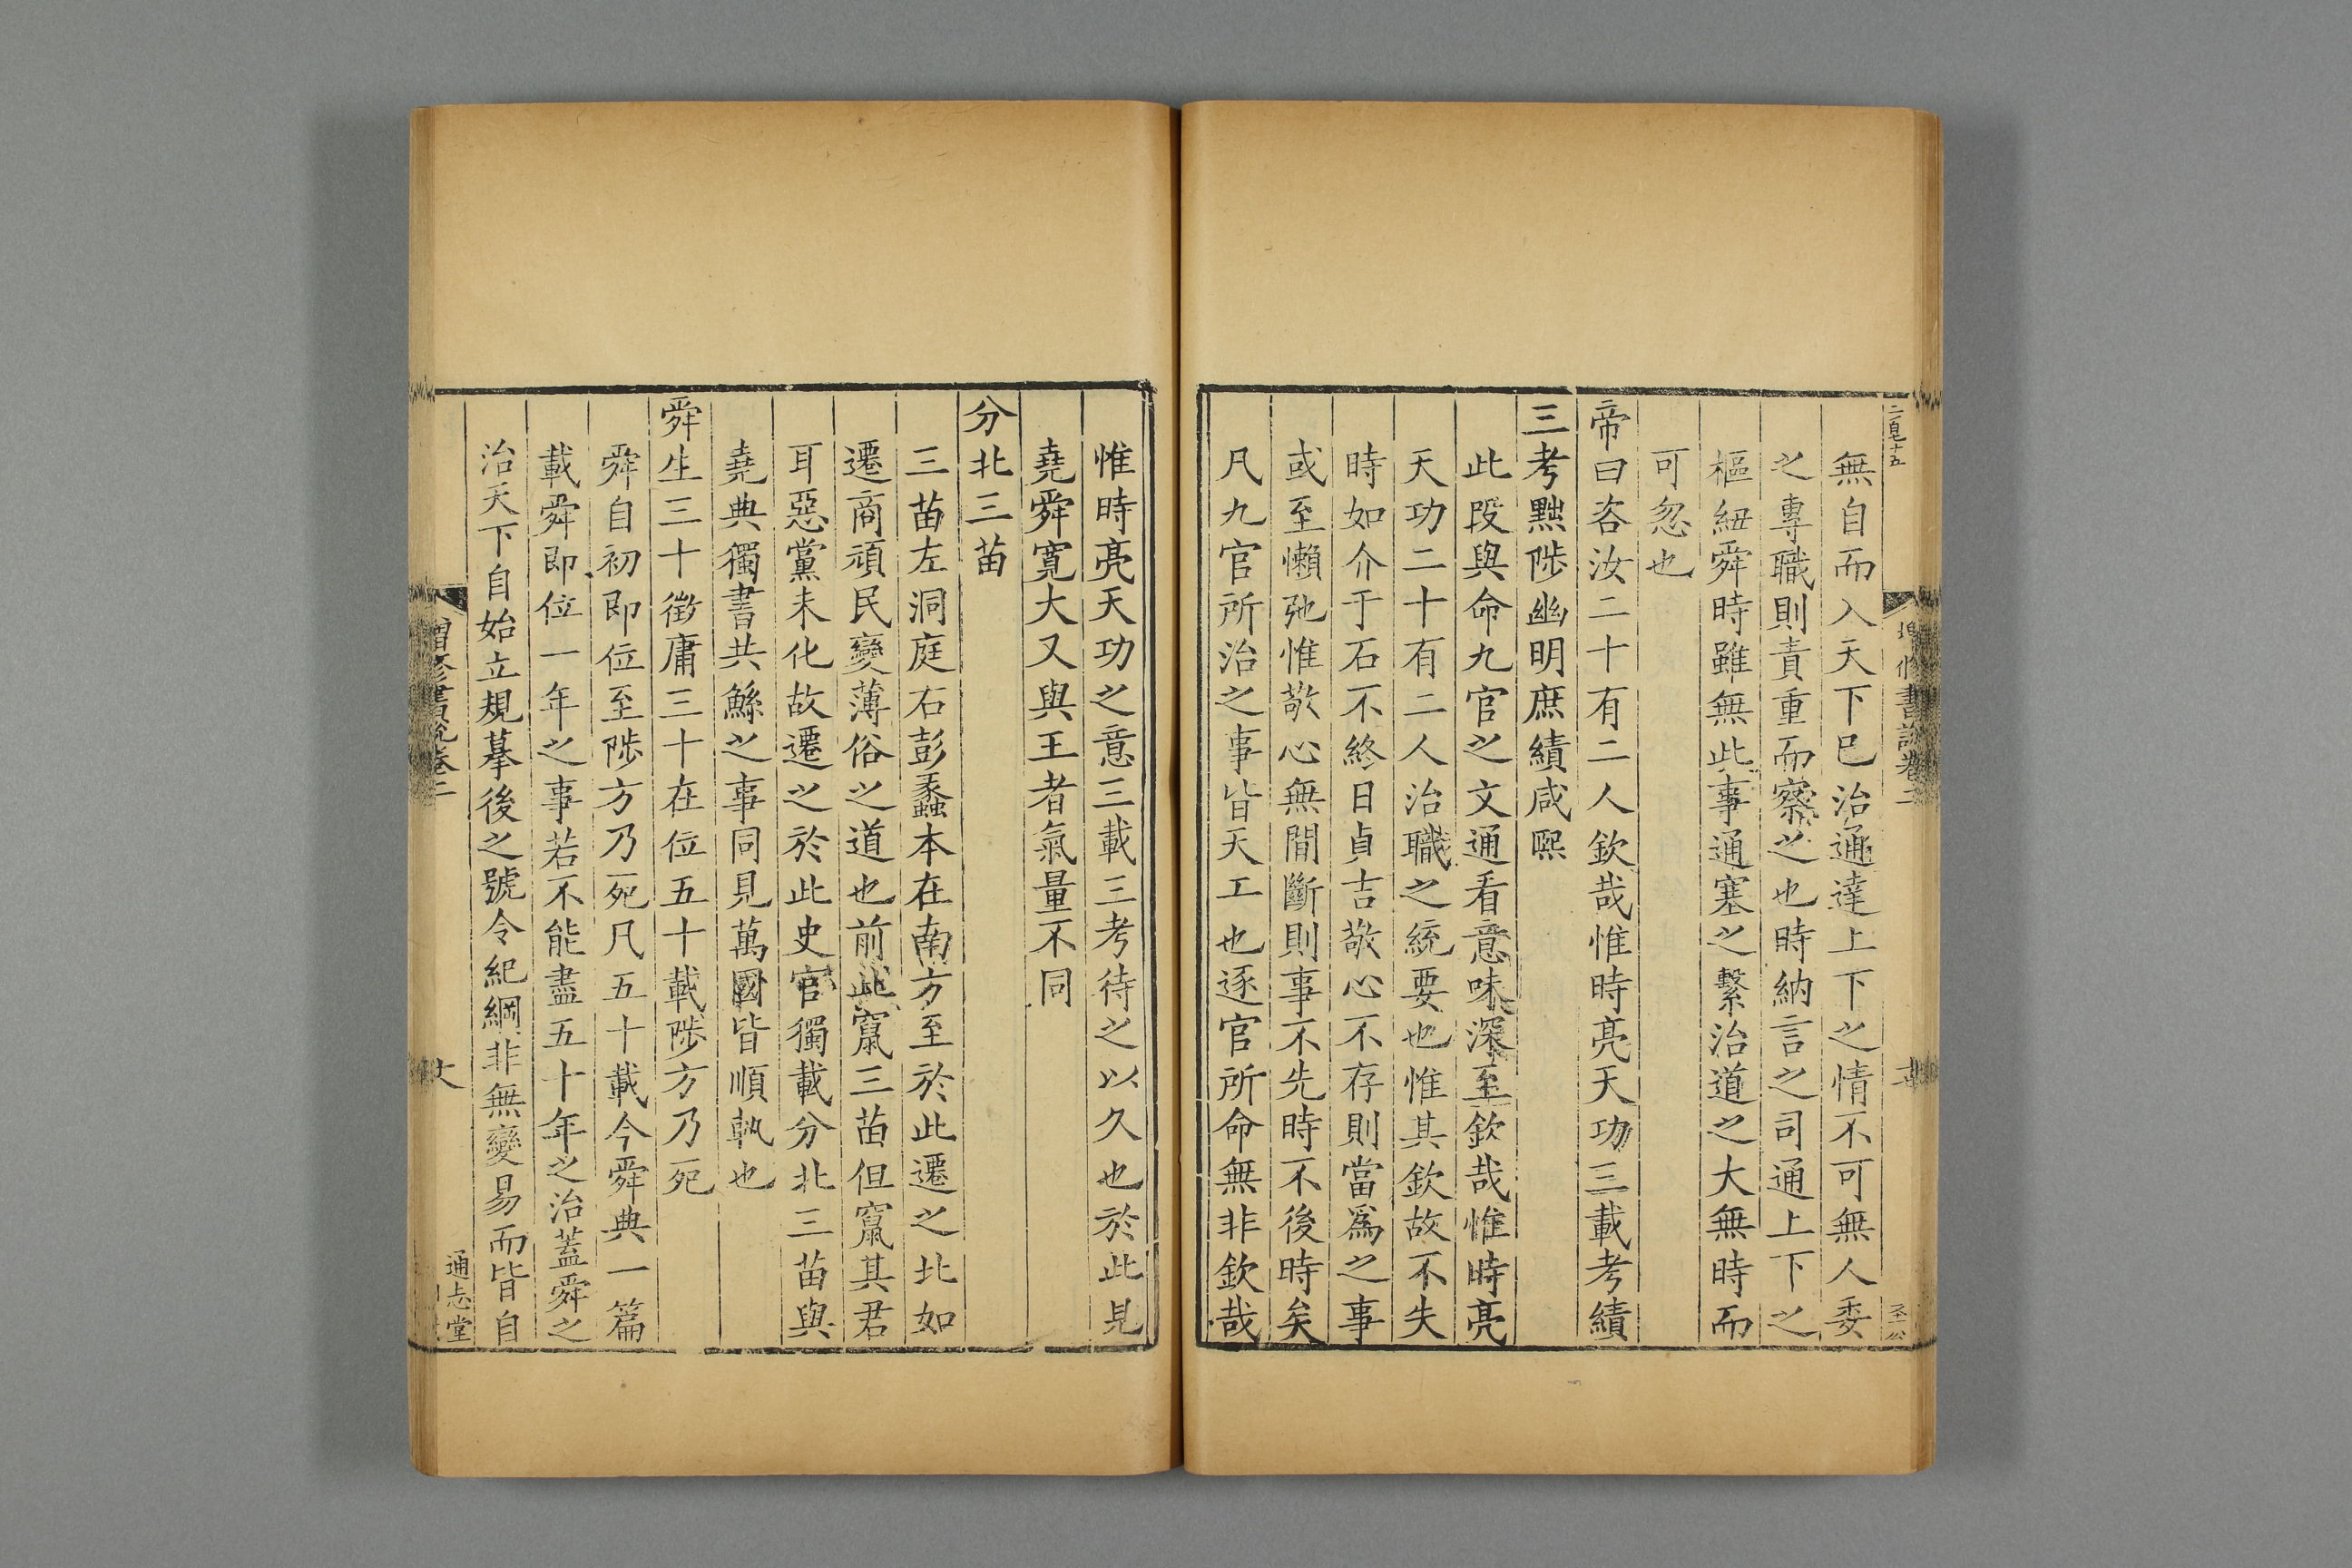 無自而入天下巳治通達上下之情不可無人委
之專職則責重而察之也時納言之司通上下之
樞紐舜時雖無此事通塞之繫治道之大無時而
可忽也
帝曰咨汝二十有二人欽哉惟時亮天功三載考績
三考黜陟幽明庶績咸熙
此段與命九官之文通看意味深至欽哉惟時亮
天功二十有二人治職之統要也惟其欽故不失
時如介于石不終日貞吉敬心不存則當爲之事
或至懶弛惟敬心無間斷則事不先時不後時矣
凡九官所治之事皆天工也逐官所命無非欽哉
惟時亮天功之意三載三考待之以久也於此見
堯舜寛大又與王者氣量不同
分北三苗
三苗左洞庭右彭蠡本在南方至於此遷之北如
遷商頑民變薄俗之道也前此竄三苗但竄其君
耳惡黨未化故遷之於此史官獨載分北三苗與
堯典獨書共鯀之事同見萬國皆順執也
舜生三十徵庸三十在位五十載陟方乃死
舜自初即位至陟方乃死凡五十載今舜典一篇
載舜即位一年之事若不能盡五十年之治蓋舜之
治天下自始立規摹後之號令紀綱非無變易而皆自
增修書說卷二
通志堂